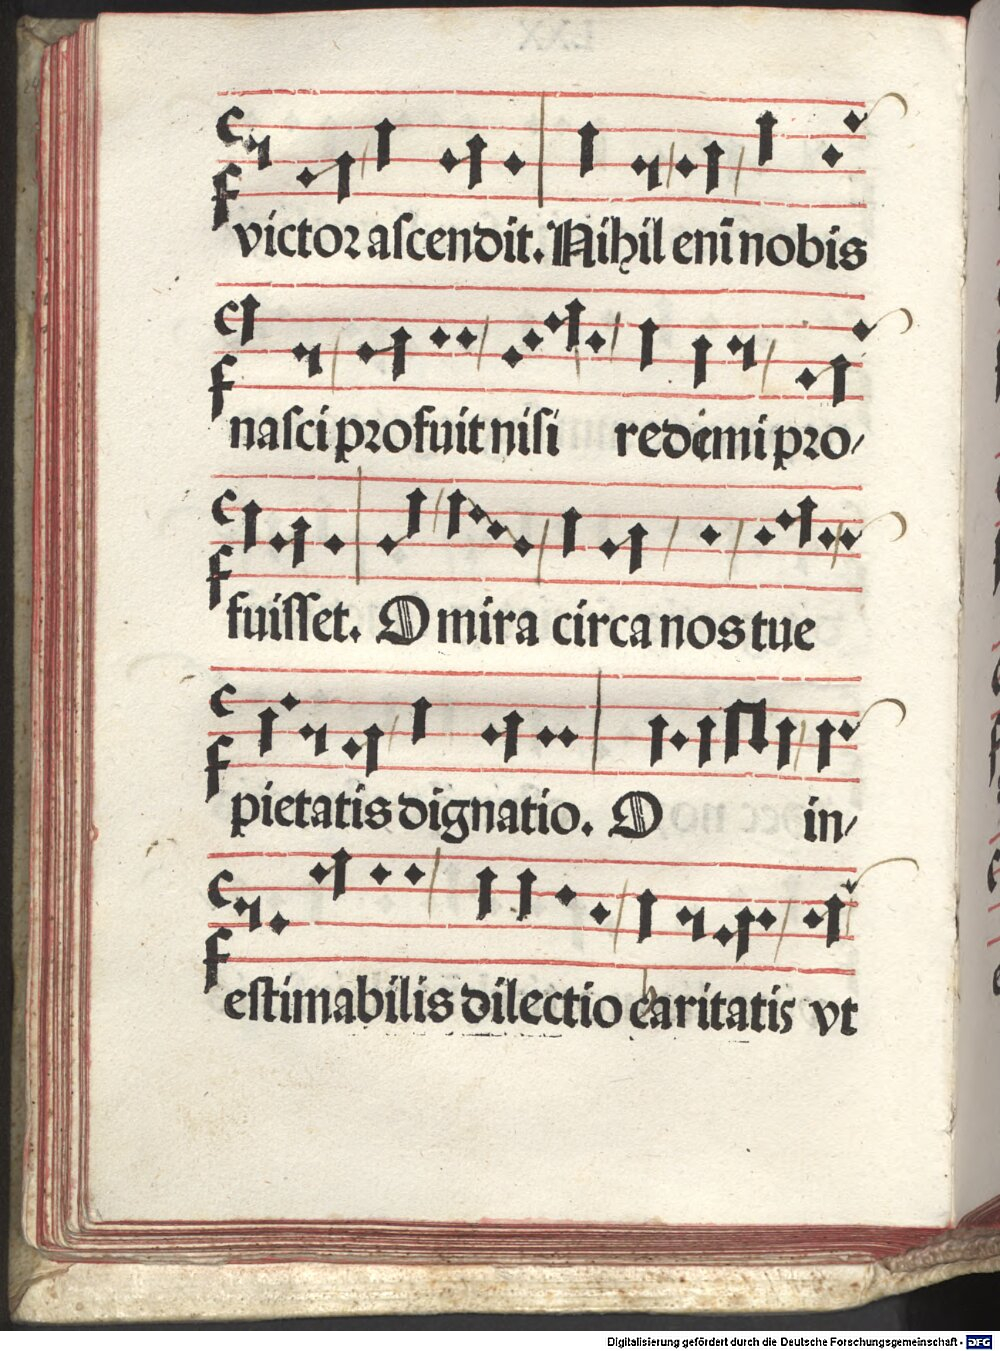 victor ascendit. Nihil enī nobis
nasci profuit nisi redemi pro/
fuisset. O mira circa nos tue
pietatis dignatio. O in/
estimabilis dilectio caritatis vt
Digitalisierung gefördert durch die Deutsche Forschungsgemeinschaft - DFG